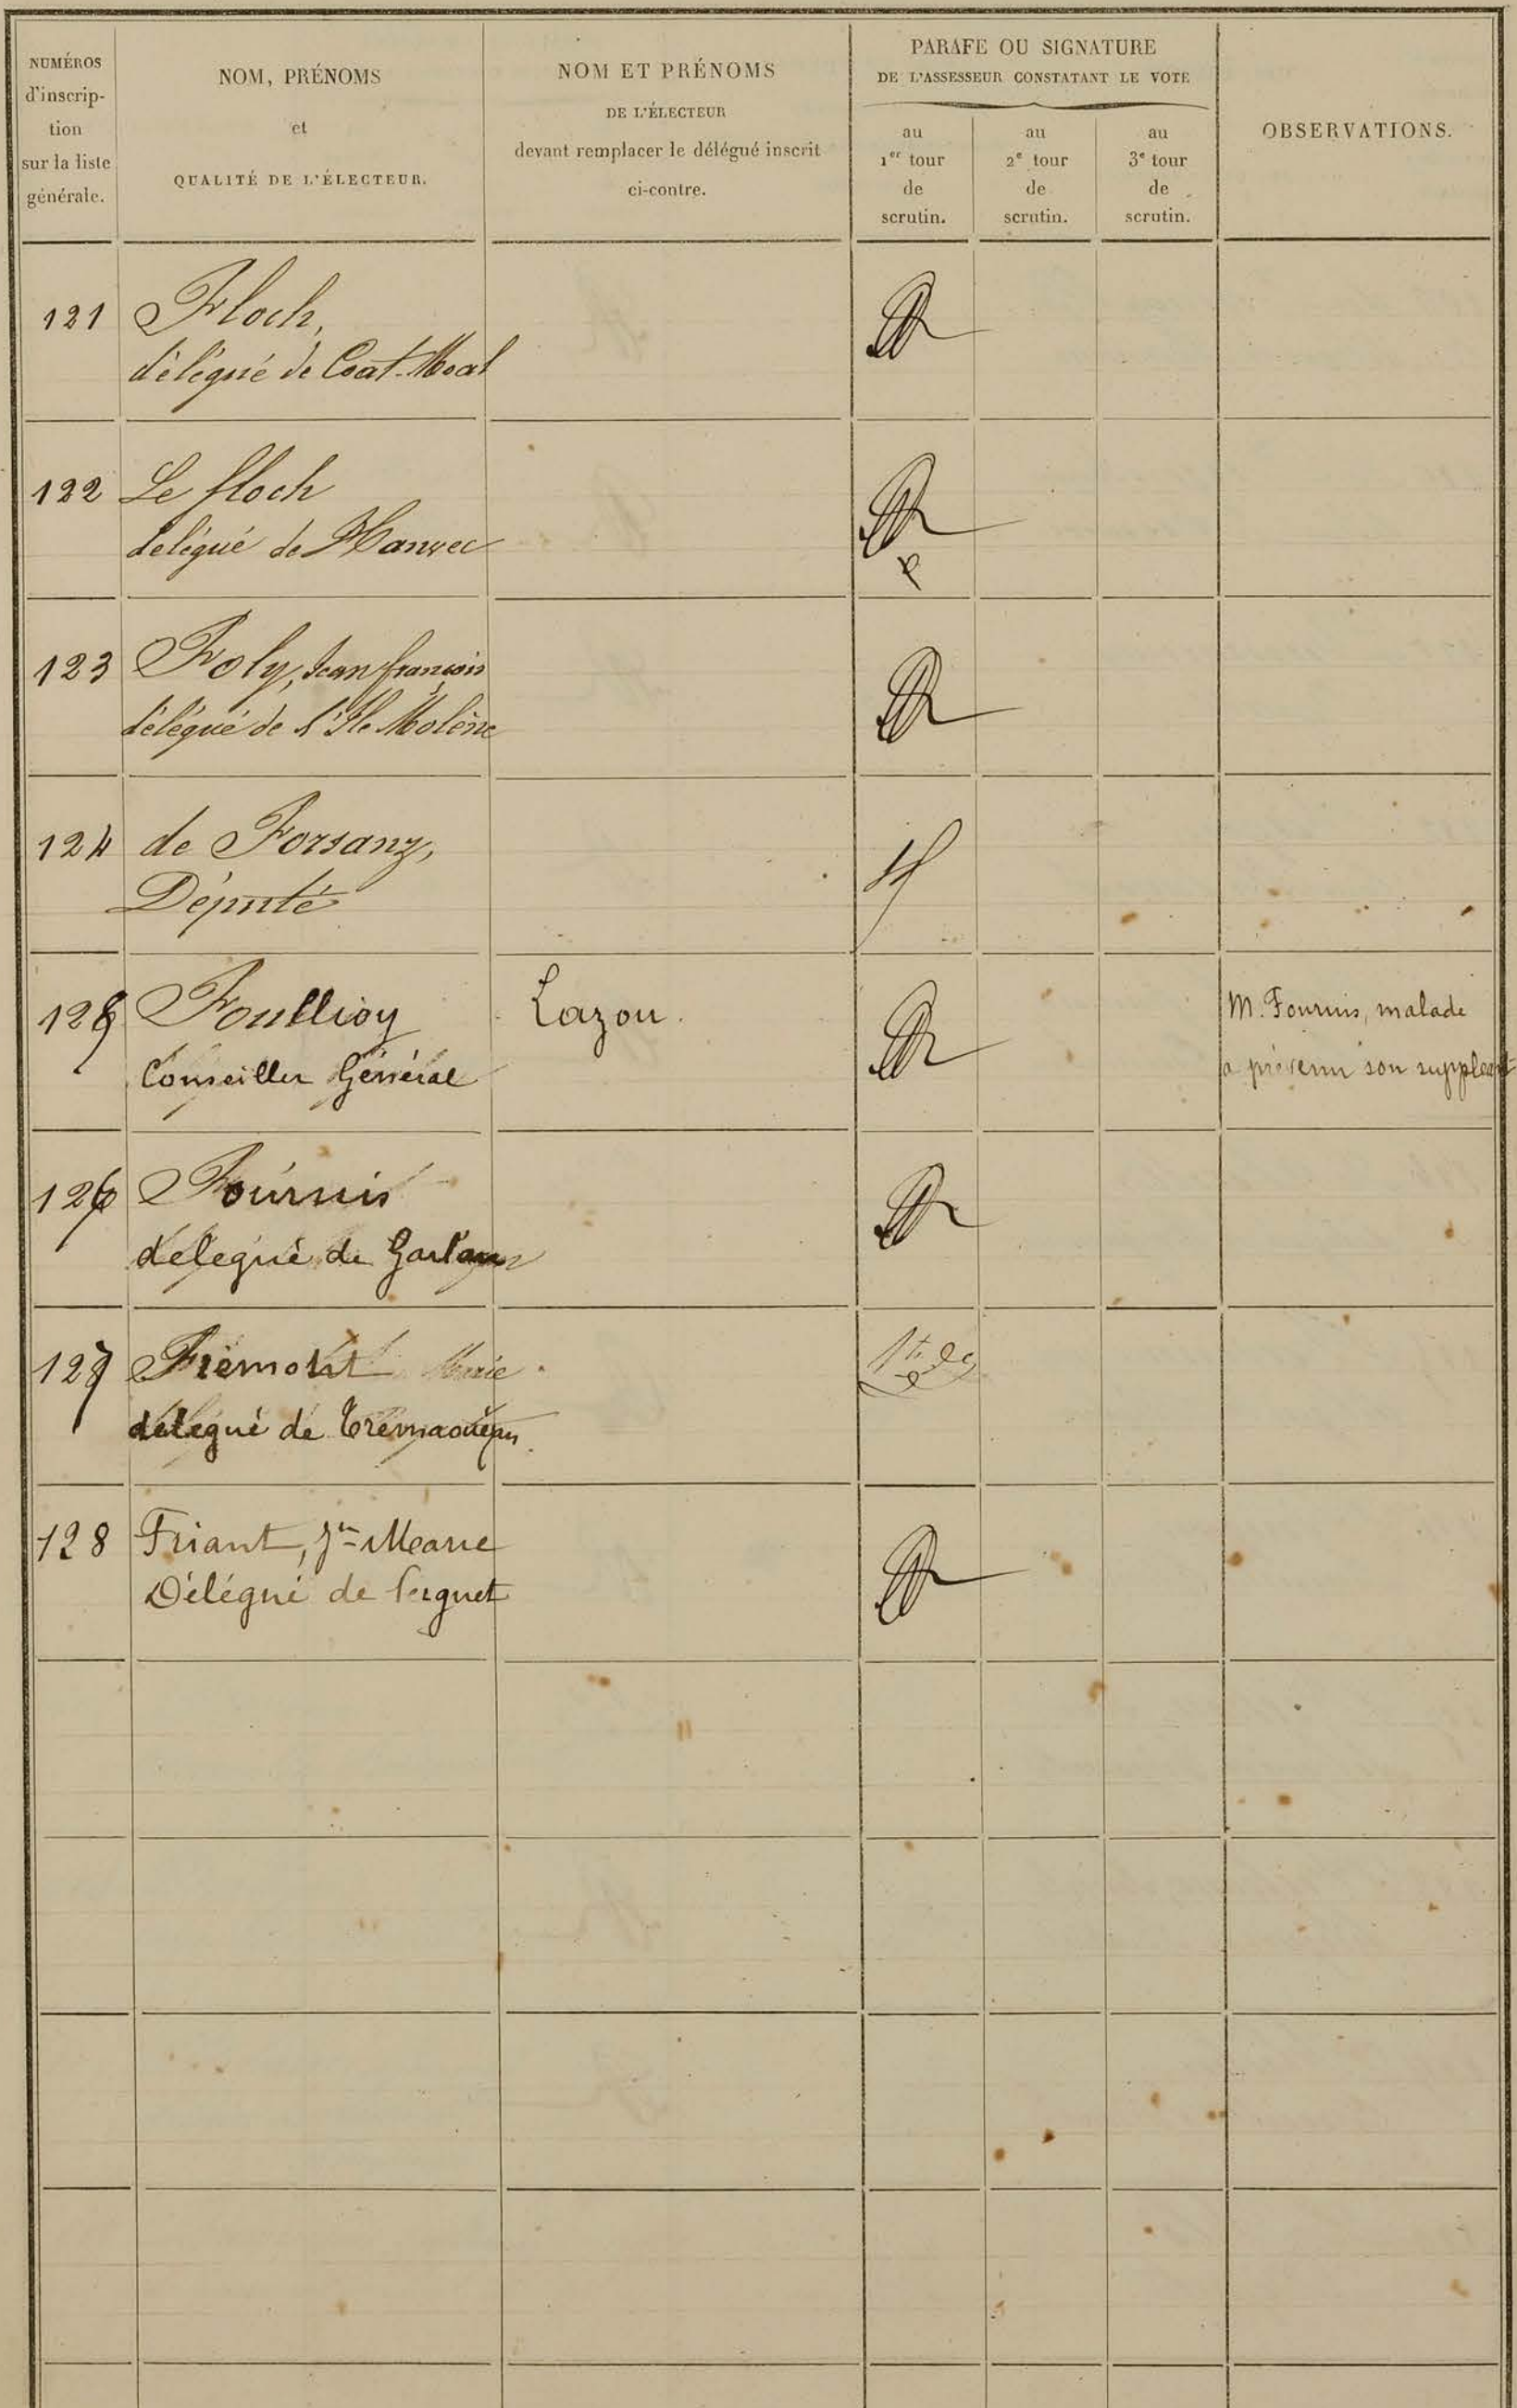 NUMÉROS
d'inscrip-
tion
sur la liste
générale.
NOM, PRÉNOMS
et
QUALITÉ DE L'ÉLECTEUR.
NOM ET PRÉNOMS
DE L'ÉLECTEUR
devant remplacer le délégué inscrit
ci-contre.
PARAFE OU SIGNATURE
DE L'ASSESSEUR CONSTATANT LE VOTE
au
1er tour
de
scrutin.
au
2e tour
de
scrutin.
au
3e tour
de
scrutin.
OBSERVATIONS.
121 Floch,
délégué de Coat-Moal
122 Le floch
délégué de Hanvec
123 Foly, Jean françois
délégué de l'Ile Molène
124 de Forsanz,
Député
125 Foullioy Lazou.
Conseiller Général
M. Fournis, malade
a prévenu son suppléant
126 Fournis
délégué de Garlan
127 Frémont Marie
délégué de Trémaouézan
128 Friant, Jn-Marie
Délégué de Perguet